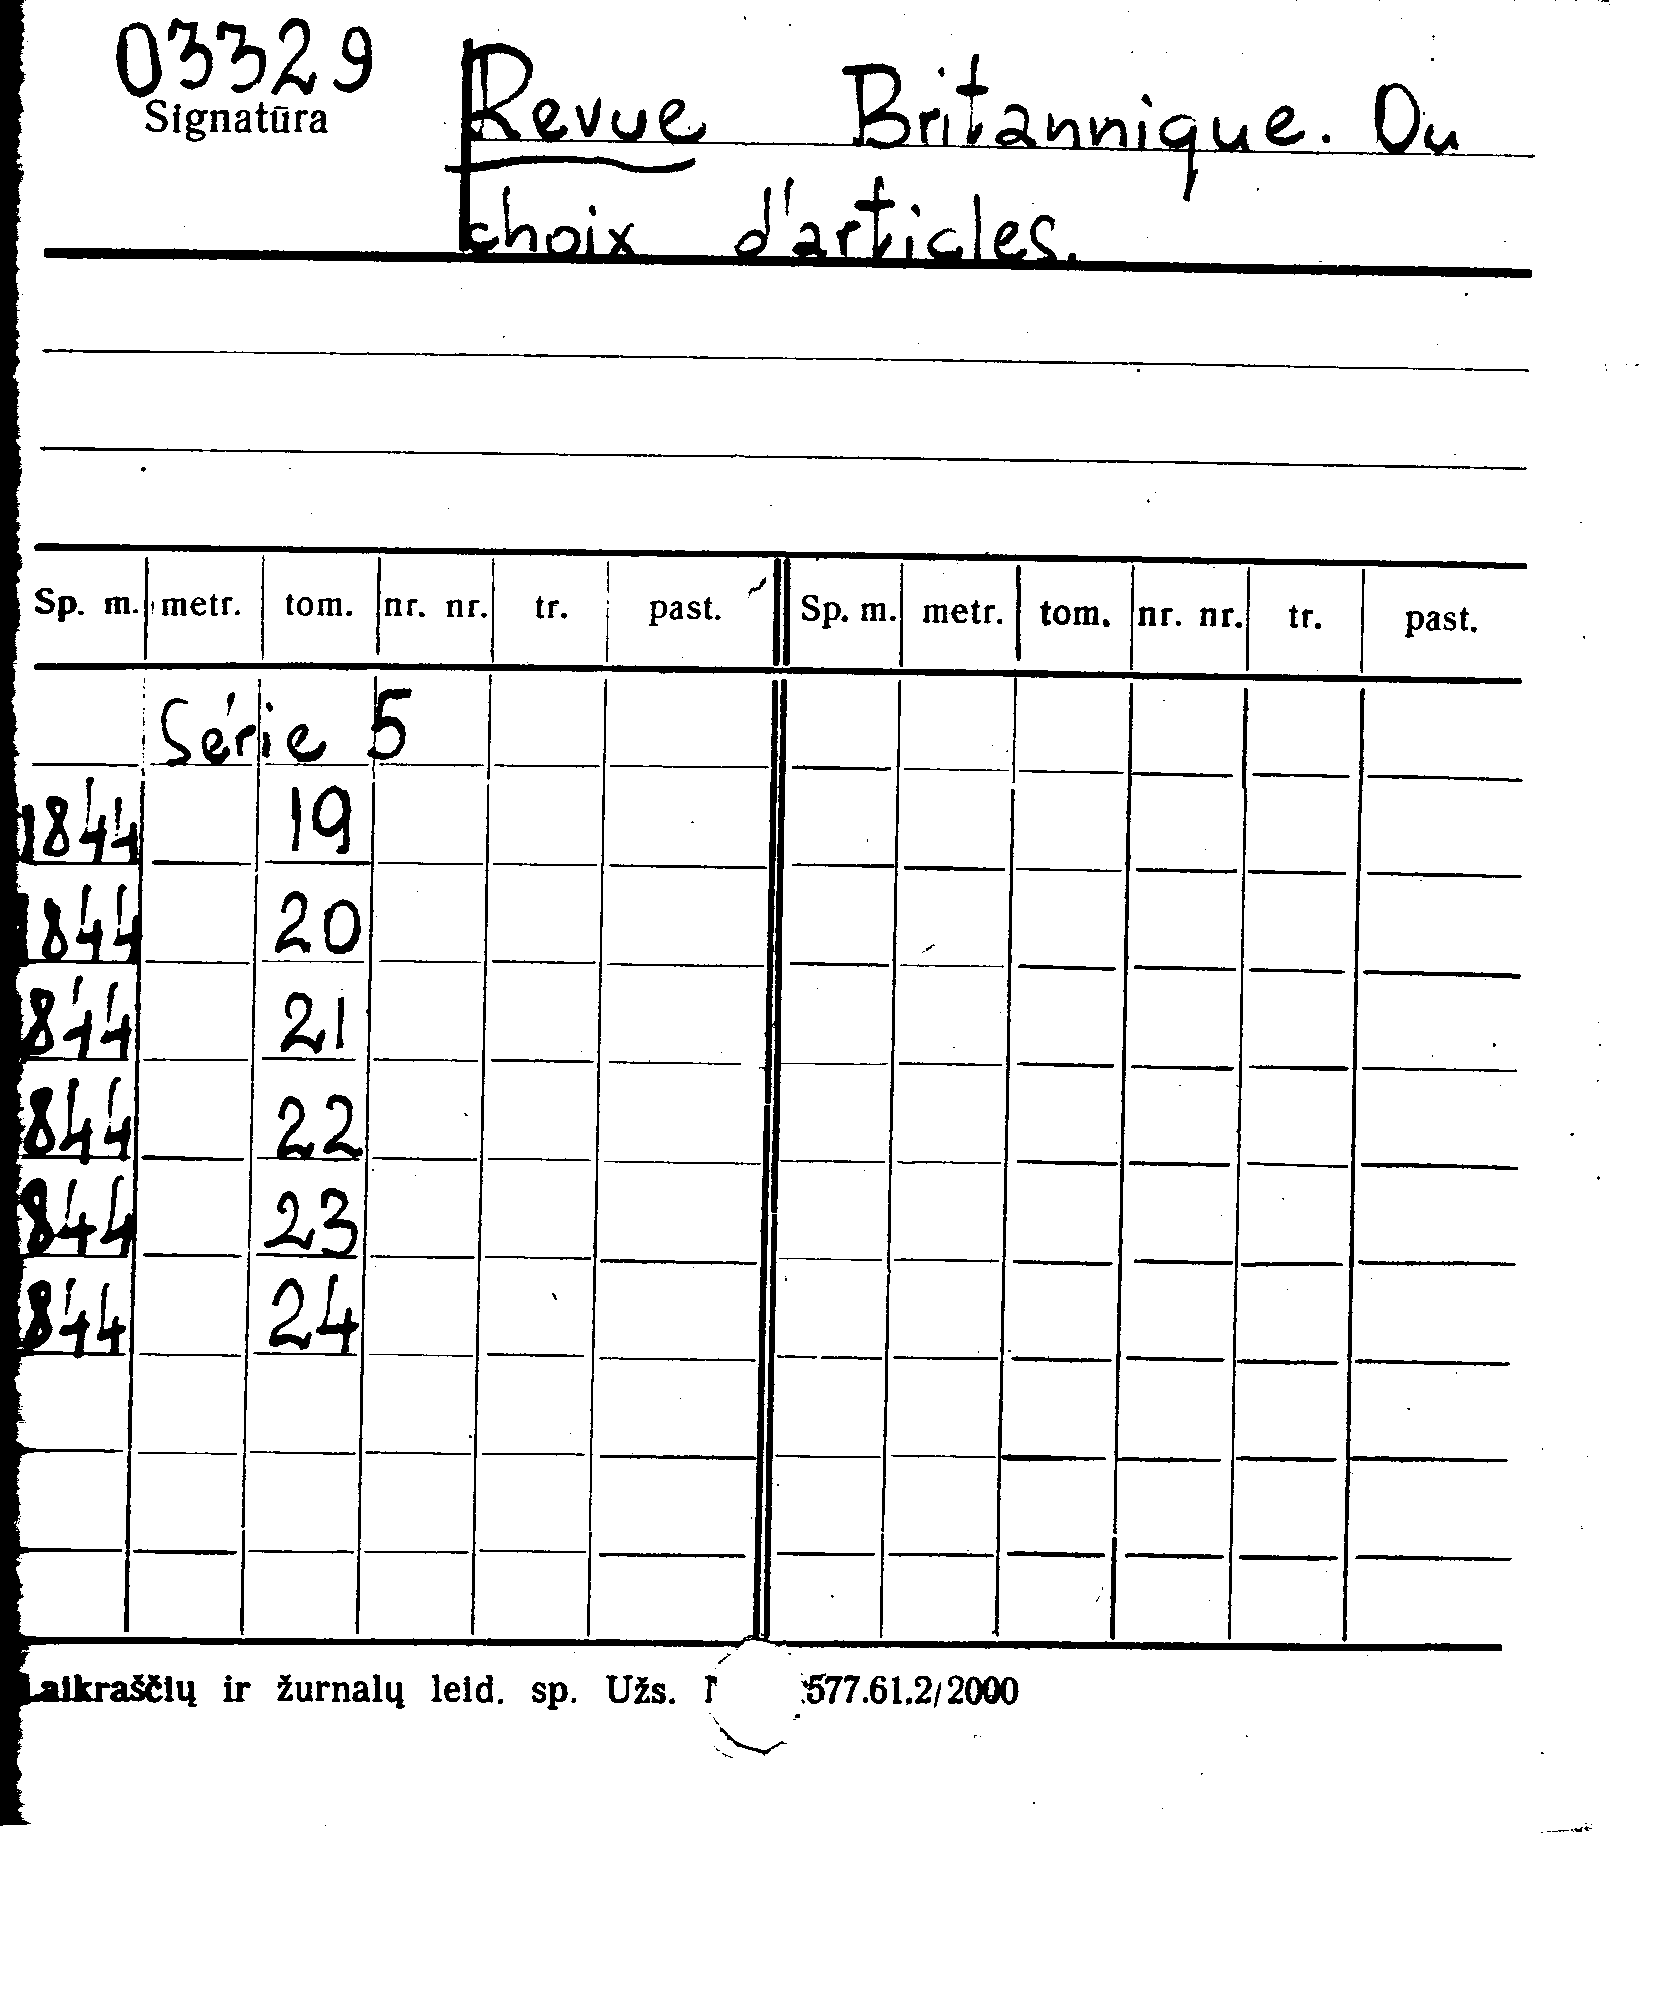 03329
Signatūra
Revue Britannique. Ou
choix d'articles.
Sp. m. metr. tom. nr. nr. tr. past. Sp. m. metr. tom. nr. nr. tr. past.
Série 5
1844 19
1844 20
844 21
844 22
844 23
844 24
Laikraščių ir žurnalų leid. sp. Užs. 577.61.2/2000